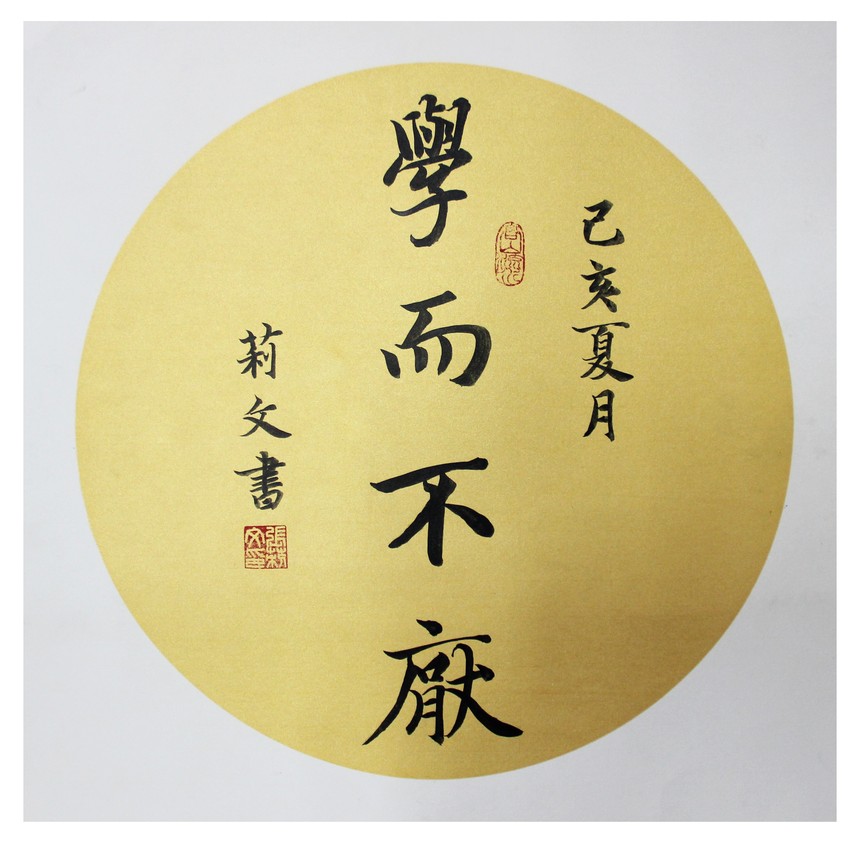 己亥夏月
學而不厭
莉文書
張莉文印